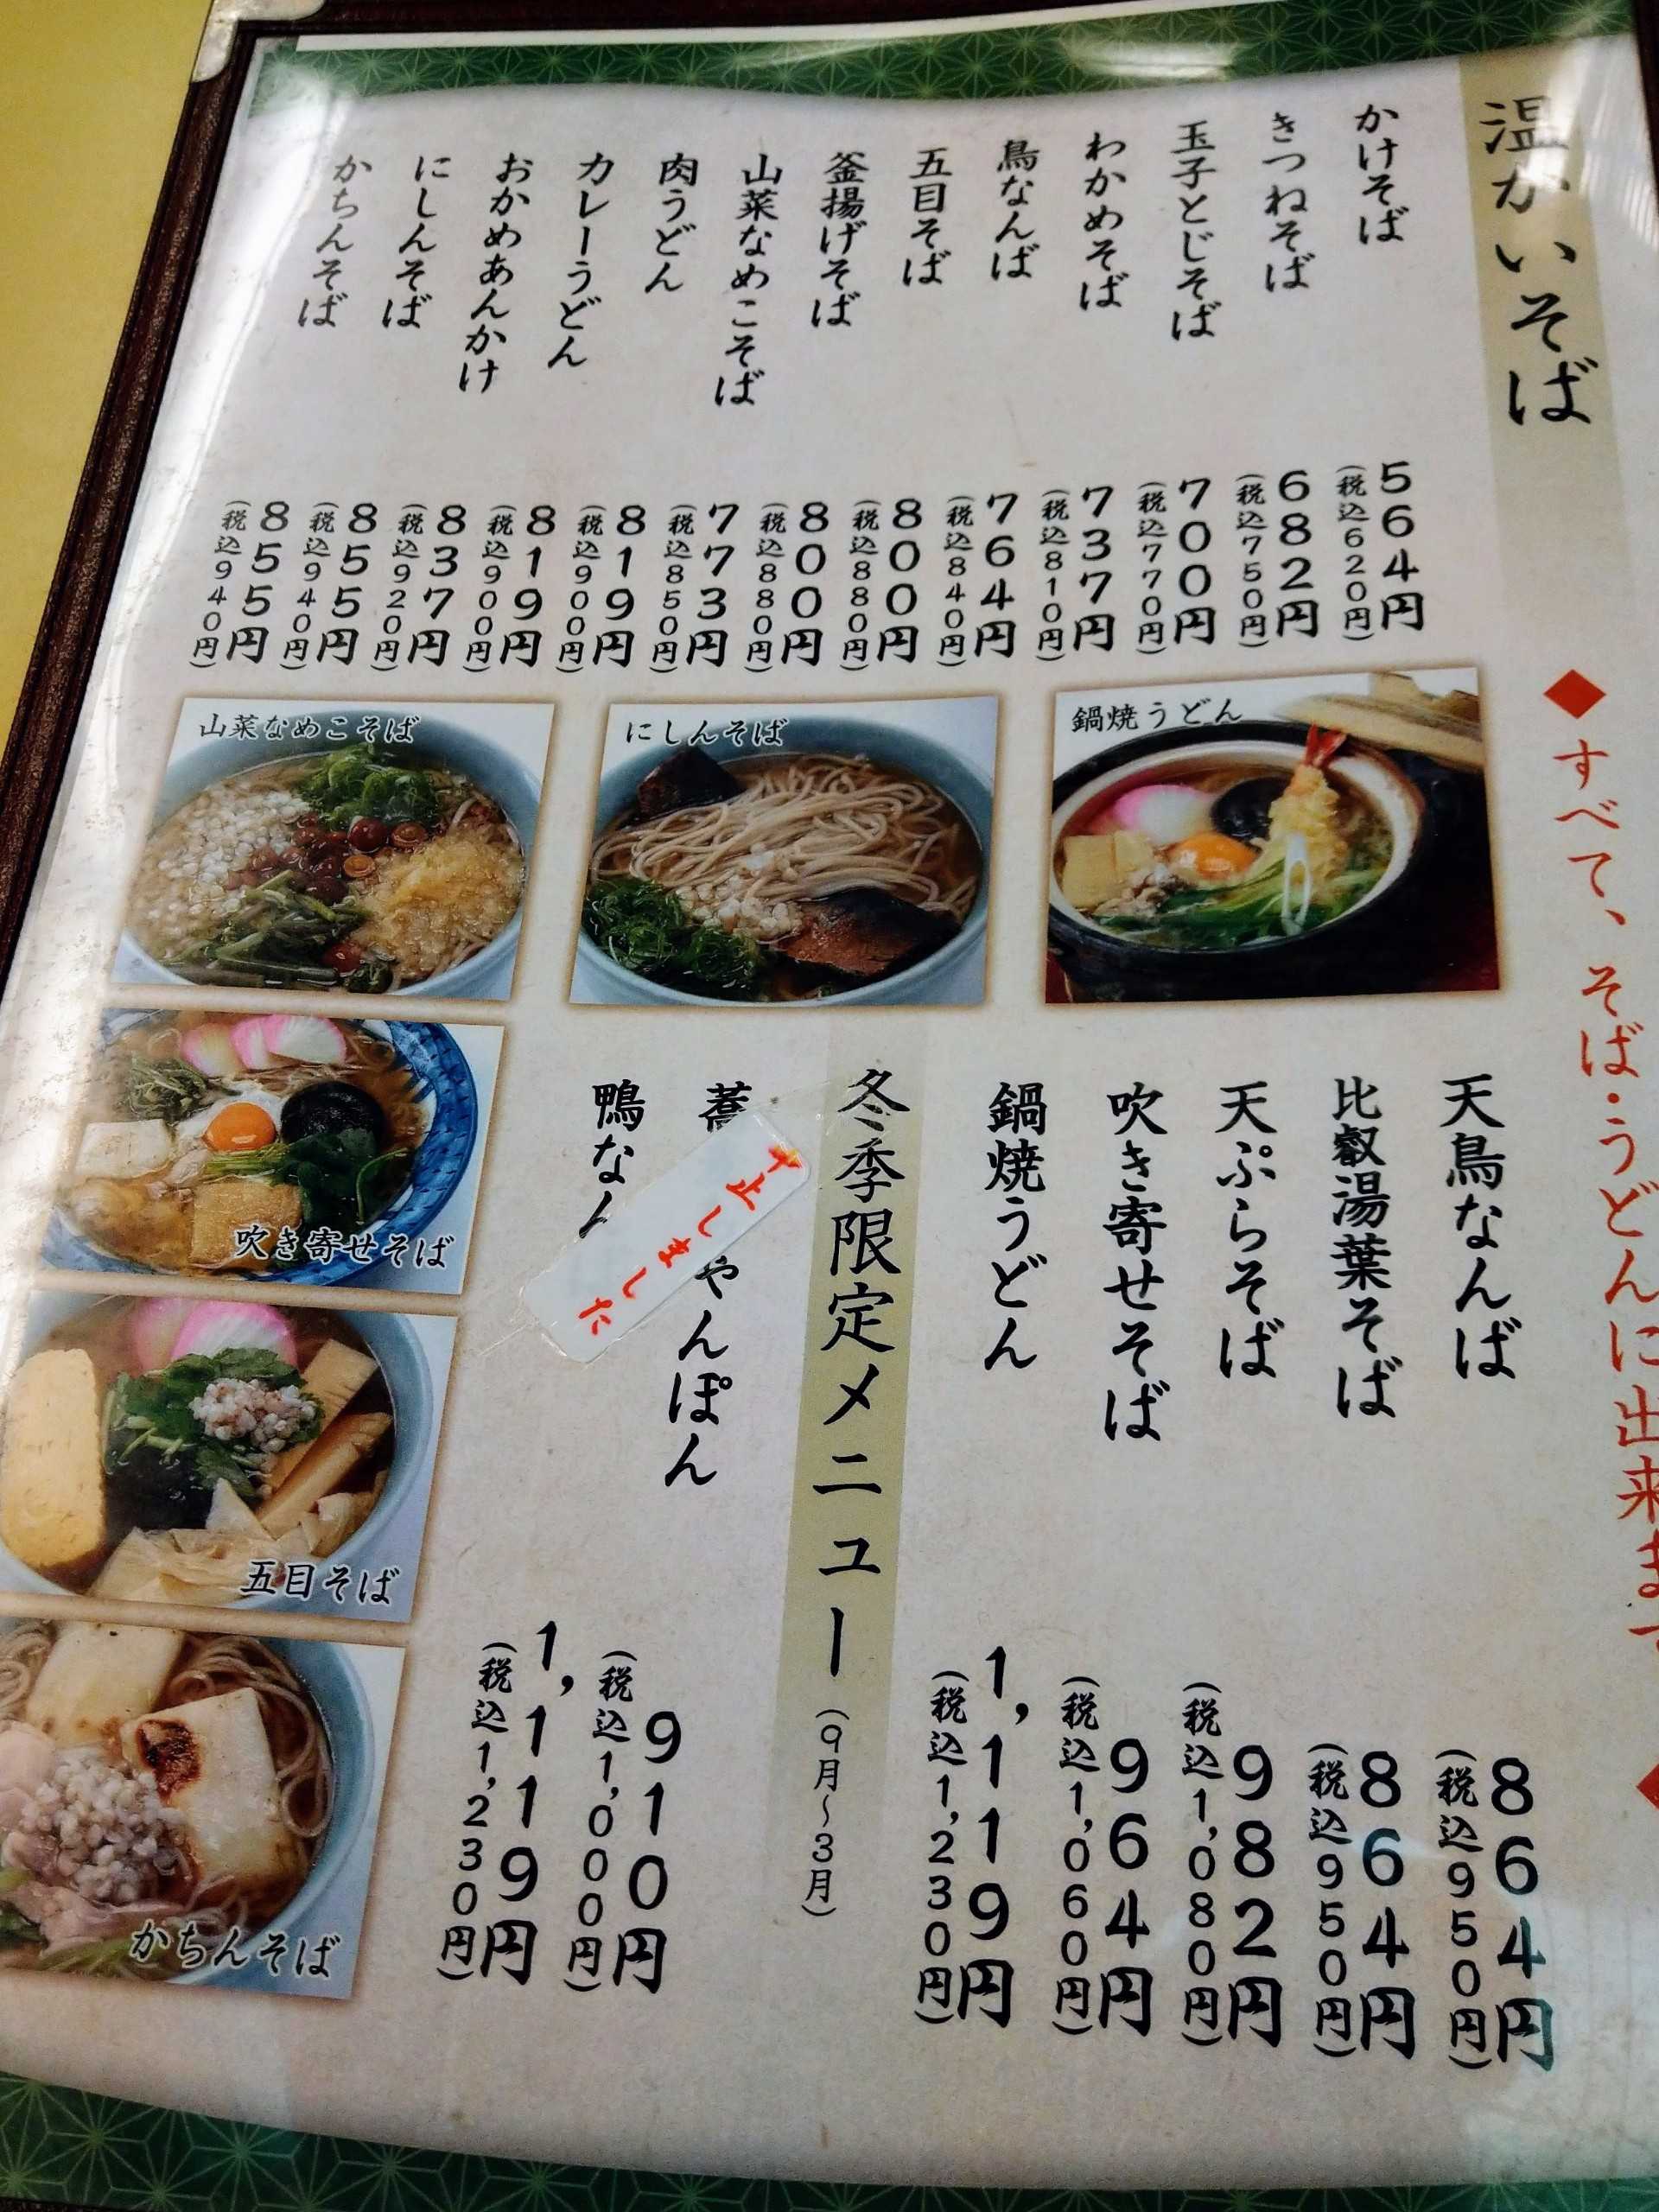 温かいそば
◆すべて、そば・うどんに出来ます
かけそば
564円
(税込620円)
きつねそば
682円
(税込750円)
玉子とじそば
700円
(税込770円)
わかめそば
737円
(税込810円)
鳥なんば
764円
(税込840円)
五目そば
800円
(税込880円)
釜揚げそば
800円
(税込880円)
山菜なめこそば
773円
(税込850円)
肉うどん
819円
(税込900円)
カレーうどん
819円
(税込900円)
おかめあんかけ
837円
(税込920円)
にしんそば
855円
(税込940円)
かちんそば
855円
(税込940円)
鍋焼うどん
にしんそば
山菜なめこそば
吹き寄せそば
五目そば
かちんそば
天鳥なんば
864円
(税込950円)
比叡湯葉そば
864円
(税込950円)
天ぷらそば
982円
(税込1,080円)
吹き寄せそば
964円
(税込1,060円)
鍋焼うどん
1,119円
(税込1,230円)
冬季限定メニュー(9月～3月)
蕎 ゃんぽん
910円
(税込1,000円)
鴨なん
1,119円
(税込1,230円)
止しました